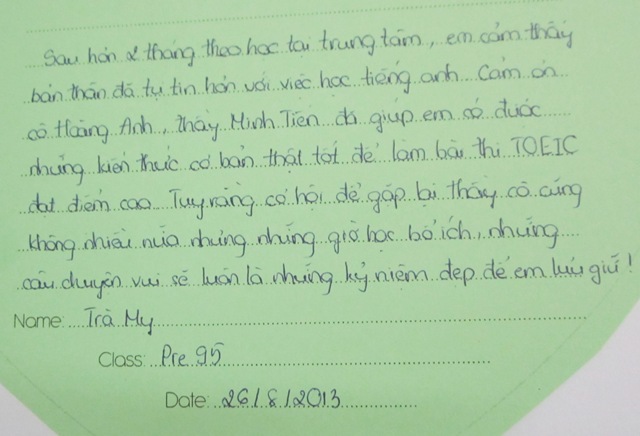 Sau hơn 2 tháng theo học tại trung tâm, em cảm thấy
bản thân đã tự tin hơn với việc học tiếng anh. Cảm ơn
cô Hoàng Anh, thầy Minh Tiến đã giúp em có được
những kiến thức cơ bản thật tốt để làm bài thi TOEIC
đạt điểm cao. Tuy rằng cơ hội để gặp lại thầy cô cũng
không nhiều nữa nhưng những giờ học bổ ích, những
câu chuyện vui sẽ luôn là những kỷ niệm đẹp để em lưu giữ!
Name: Trà My
Class: Pre 95
Date: 26/8/2013